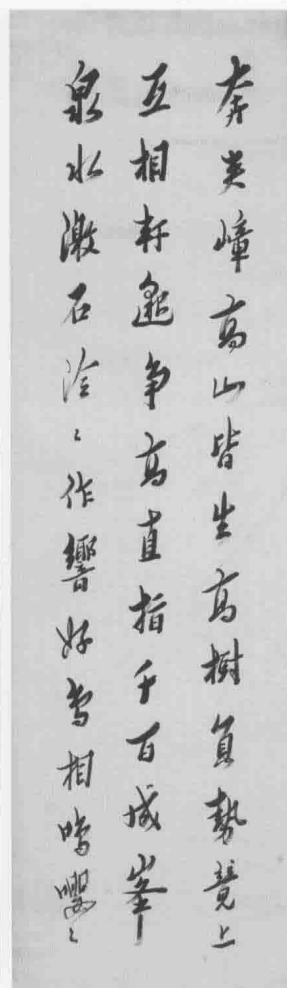 奔夹嶂高山皆生高樹負勢競上
互相軒邈争高直指千百成峯
泉水激石泠〻作響好鸟相鳴嚶〻